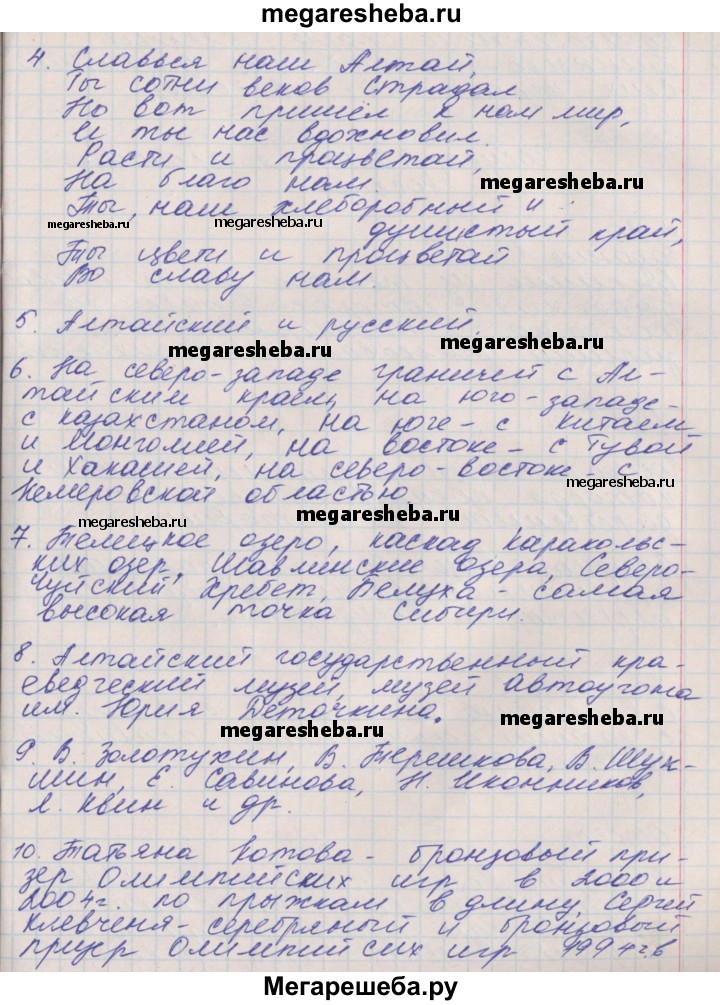 megaresheba.ru
4. Славься наш Алтай,
Ты сотни веков страдал
Но вот пришёл к нам мир,
И ты нас вдохновил.
Расти и процветай,
На благо нам.
megaresheba.ru
Ты, наш хлеборобный и
megaresheba.ru
megaresheba.ru
душистый край,
Ты цвети и процветай
Во славу нам.
5. Алтайский и русский.
megaresheba.ru
6. На северо-западе граничей с Ал-
тайским краем, на юго-западе-
с казахстаном, на юге - с китаем
и Монголией, на востоке - с Тувой
и Хакасией, на северо-востоке - с
megaresheba.ru
Кемеровской областью
megaresheba.ru
megaresheba.ru
7. Телецкое озеро, каскад Каракольс-
ких озер, Шавлинские озера, Северо-
Чуйский хребет, Белуха - самая
высокая точка Сибири.
8. Алтайский государственный кра-
еведческий музей, музей автоугона
им. Юрия Деточкина.
megaresheba.ru
megaresheba.ru
9. В. Золотухин, В. Терешкова, В. Шук-
шин, Е. Савинова, Н. Иконников,
Л. Квин и др.
10. Татьяна Котова - бронзовый при-
зер Олимпийских игр в 2000 и
2004г. по прыжкам в длину, Сергей
Клевченя - серебряный и бронзовый
призер Олимпийских игр 1994г. в
Мегарешеба.ру